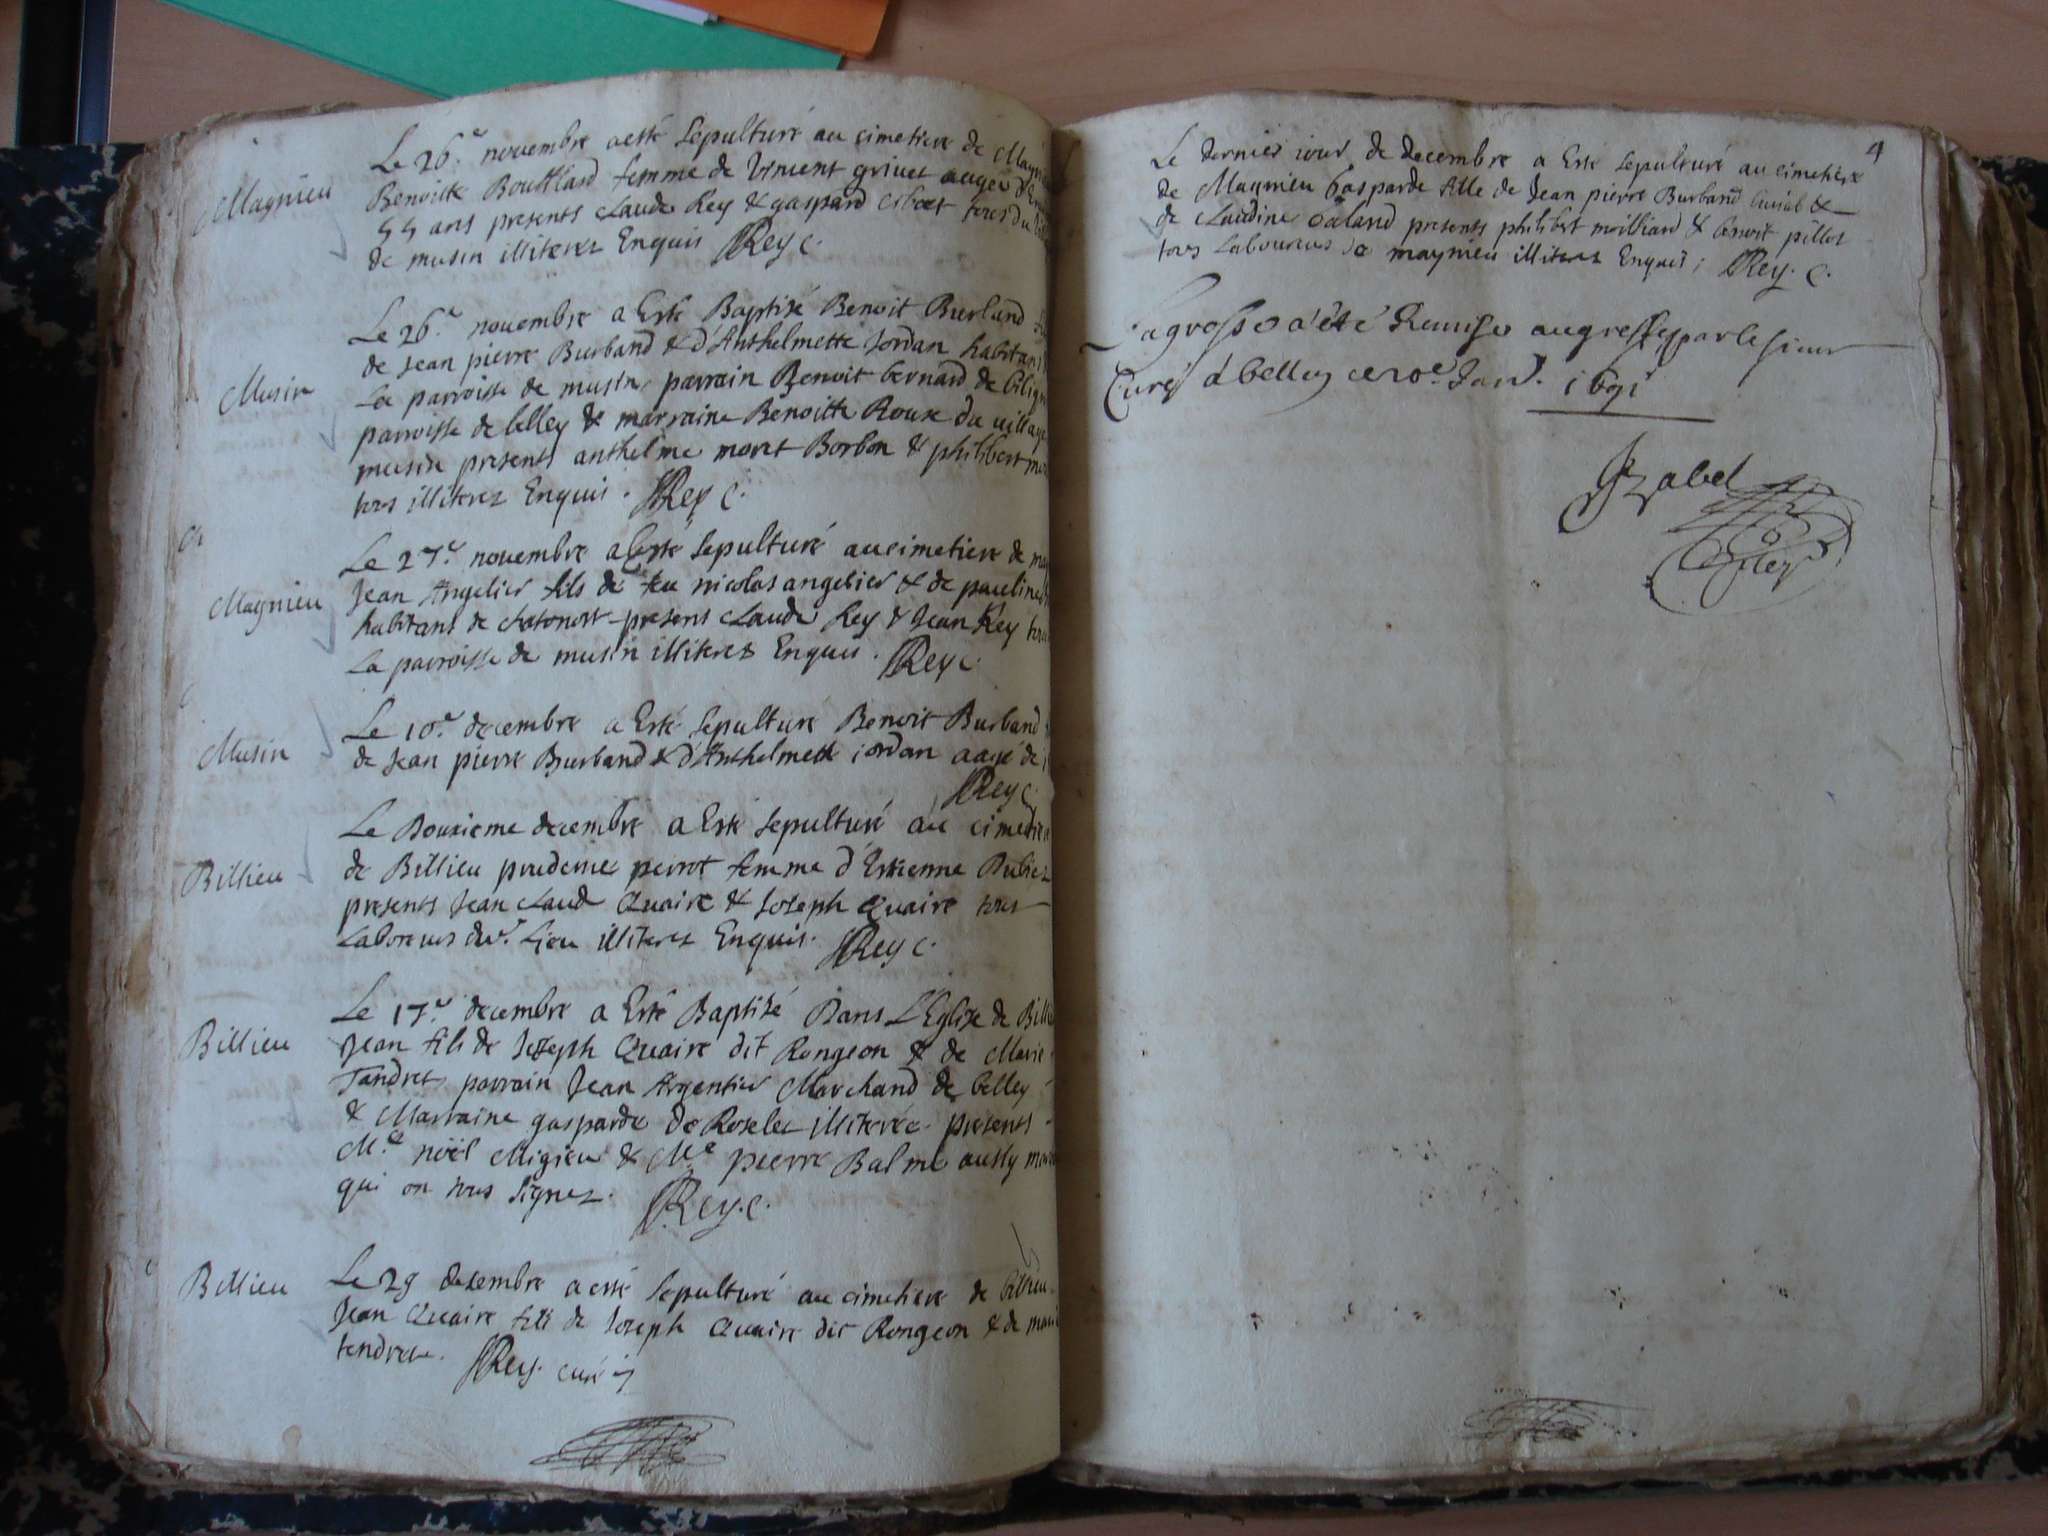 Magnieu
Le 26.e novembre a esté sepulturé au cimetiere de
Benoitte Bouttlard femme de Vincent grivet augee de
55 ans presents Claude Rey & gaspard tous du
de musin illiteres Enquis Rey c.
Musin
Le 26.e novembre a Esté Baptisé Benoit Burband
de Jean pierre Burband & d'Anthelmette Jordan habitans
La parroisse de musin, parrain Benoit bernard de
parroisse de belley & marraine Benoitte Roux du village
musin presents anthelme moret Borbon & philibert
tous illiteres Enquis. Rey C.
Magnieu
Le 27.e novembre a Esté sepulturé au cimetiere de
Jean Angelier fils de feu nicolas angelier & de pauline
habitans de presens Claude Rey & Jean Rey
La parroisse de musin illiteres Enquis. Rey c.
Musin
Le 10.e decembre a Esté sepulturé Benoit Burband
de Jean pierre Burband & d'Anthelmette iordan aagé de
Rey c
Billieu
Le Douzieme decembre a Esté sepulturé au cimetiere
de Billieu prudence perrot femme d'Estienne
presents Jean Claud Quaire & Joseph Quaire tous
Laboreurs du. Lieu illiteres Enquis. Rey c.
Billieu
Le 17.e decembre a Esté Baptizé Dans L'Eglise de
Jean fils de Joseph Quaire dit Rongeon & de Marie
Tandret parrain Jean Argentier Marchand de belley
& Marraine gasparde De Roselet illiterée presents
M.e noël Migieu & M.e pierre Balme aussy
qui on tous signez. Rey. c.
Billieu
Le 29 desembre a esté sepulturé au cimetiere de billieu
Jean Quaire fils de Joseph Quaire dit Rongeon & de
tendret. Rey. curé
4
Le dernier iour de decembre a Esté sepulturé au cimetiere
de Magnieu Gasparde fille de Jean pierre Burband &
de Claudine presents philibert milliard & benoit pillot
tous Laboureurs de magnieu illiteres Enquis; Rey. C.
La grosse a été Remise au greffe par le sieur
Curé a belley ce 10.e Janv. 1691
Izabel